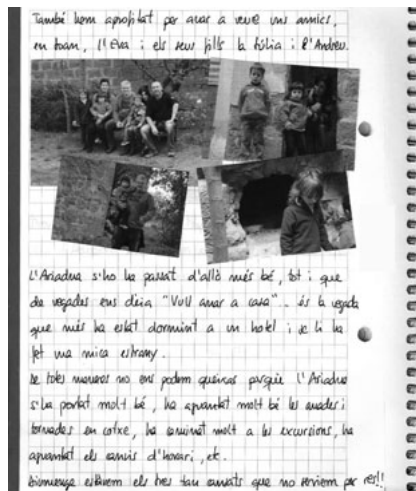 També hem aprofitat per anar a veure uns amics,
en Joan, l'Eva i els seus fills la Júlia i l'Andreu.
L'Ariadna s'ho ha passat d'allò més bé, tot i que
de vegades ens deia "Vull anar a casa"... és la vegada
que més ha estat dormint a un hotel i se li ha
fet una mica estrany.
De totes maneres no ens podem queixar perquè l'Ariadna
s'ha portat molt bé, ha aguantat molt bé les anades i
tornades en cotxe, ha caminat molt a les excursions, ha
aguantat els canvis d'horari, etc.
Diumenge estàvem els tres tan cansats que no servíem per res!!